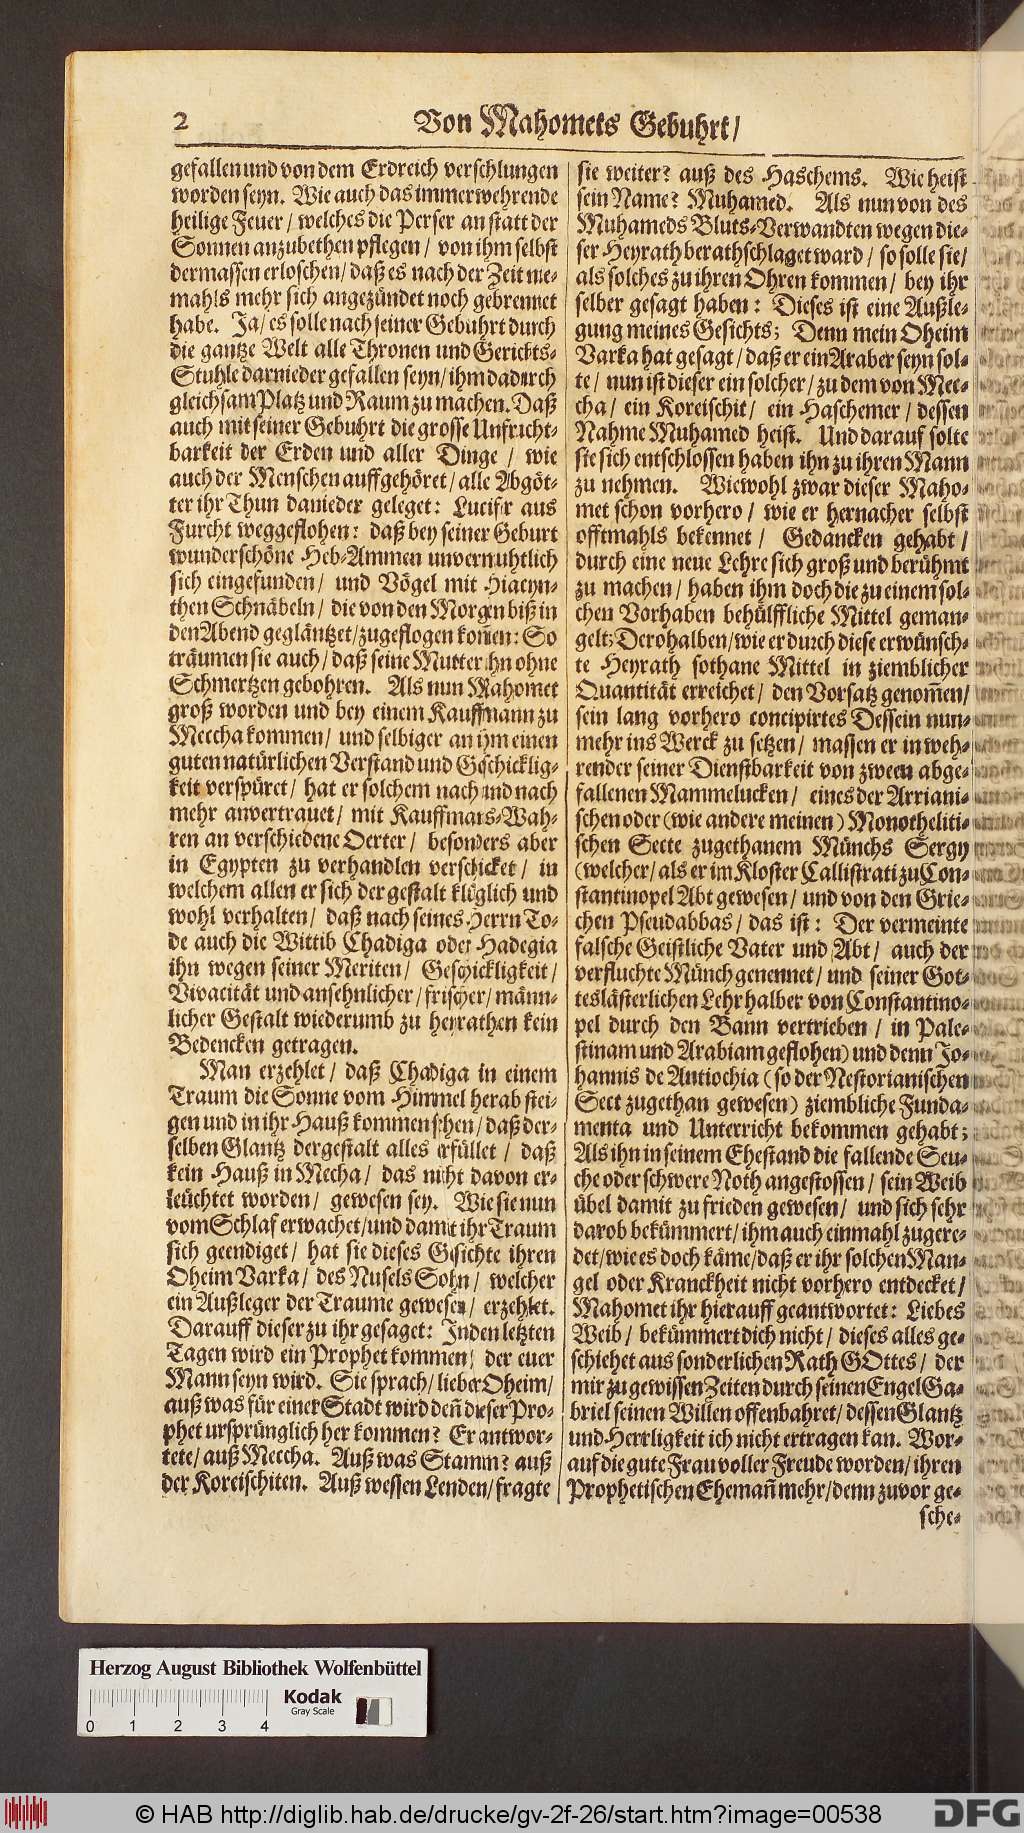 2
Von Mahomets Gebuhrt/
gefallen und von dem Erdreich verschlungen
worden seyn. Wie auch das immerwehrende
heilige Feuer / welches die Perser an statt der
Sonnen anzubethen pflegen / von ihm selbst
dermassen erloschen / daß es nach der Zeit nie-
mahls mehr sich angezündet noch gebrennet
habe. Ja / es solle nach seiner Gebuhrt durch
die gantze Welt alle Thronen und Gerichts-
Stuhle darnieder gefallen seyn / ihm dadurch
gleichsam Platz und Raum zu machen. Daß
auch mit seiner Gebuhrt die grosse Unfrucht-
barkeit der Erden und aller Dinge / wie
auch der Menschen auffgehöret / alle Abgöt-
ter ihr Thun danieder geleget: Lucifer aus
Furcht weggeflohen: daß bey seiner Geburt
wunderschöne Heb-Ammen unvernuhtlich
sich eingefunden / und Vögel mit Hiacyn-
then Schnäbeln / die von den Morgen biß in
den Abend gegläntzet / zugeflogen kom̃en: So
träumen sie auch / daß seine Mutter ihn ohne
Schmertzen gebohren. Als nun Mahomet
groß worden und bey einem Kauffmann zu
Meccha kommen / und selbiger an ihm einen
guten natürlichen Verstand und Geschicklig-
keit verspüret / hat er solchem nach und nach
mehr anvertrauet / mit Kauffmans-Wah-
ren an verschiedene Oerter / besonders aber
in Egypten zu verhandlen verschicket / in
welchem allen er sich der gestalt klüglich und
wohl verhalten / daß nach seines Herrn To-
de auch die Wittib Chadiga oder Hadegia
ihn wegen seiner Meriten / Geschickligkeit /
Vivacität und ansehnlicher / frischer / männ-
licher Gestalt wiederumb zu heyrathen kein
Bedencken getragen.
Man erzehlet / daß Chadiga in einem
Traum die Sonne vom Himmel herab stei-
gen und in ihr Hauß kommen sehen / daß der-
selben Glantz dergestalt alles erfüllet / daß
kein Hauß in Mecha / das nicht davon er-
leuchtet worden / gewesen sey. Wie sie nun
vom Schlaf erwachet / und damit ihr Traum
sich geendiget / hat sie dieses Gesichte ihren
Oheim Varka / des Nusels Sohn / welcher
ein Außleger der Traume gewesen / erzehlet.
Darauff dieser zu ihr gesaget: In den letzten
Tagen wird ein Prophet kommen / der euer
Mann seyn wird. Sie sprach / lieber Oheim /
auß was für einer Stadt wird den̄ dieser Pro-
phet ursprünglich her kommen? Er antwor-
tete / auß Meccha. Auß was Stamm? auß
der Koreischiten. Auß wessen Lenden / fragte
sie weiter? auß des Haschems. Wie heist
sein Name? Muhamed. Als nun von des
Muhameds Bluts-Verwandten wegen die-
ser Heyrath berathschlaget ward / so solle sie /
als solches zu ihren Ohren kommen / bey ihr
selber gesagt haben: Dieses ist eine Außle-
gung meines Gesichts; Denn mein Oheim
Varka hat gesagt / daß er ein Araber seyn sol-
te / nun ist dieser ein solcher / zu dem von Mec-
cha / ein Koreischit / ein Haschemer / dessen
Nahme Muhamed heist. Und darauf solte
sie sich entschlossen haben ihn zu ihren Mann
zu nehmen. Wiewohl zwar dieser Maho-
met schon vorhero / wie er hernacher selbst
offtmahls bekennet / Gedancken gehabt /
durch eine neue Lehre sich groß und berühmt
zu machen / haben ihm doch die zu einem sol-
chen Vorhaben behülffliche Mittel geman-
gelt; Derohalben / wie er durch diese erwünsch-
te Heyrath sothane Mittel in ziemblicher
Quantität erreichet / den Vorsatz genom̃en /
sein lang vorhero concipirtes Dessein nun-
mehr ins Werck zu setzen / massen er in weh-
render seiner Dienstbarkeit von zween abge-
fallenen Mammelucken / eines der Arriani-
schen oder (wie andere meinen) Monotheliti-
schen Secte zugethanem Münchs Sergy
(welcher / als er im Kloster Callistrati zu Con-
stantinopel Abt gewesen / und von den Grie-
chen Pseudabbas / das ist: Der vermeinte
falsche Geistliche Vater und Abt / auch der
verfluchte Münch genennet / und seiner Got-
teslästerlichen Lehr halber von Constantino-
pel durch den Bann vertrieben / in Pale-
stinam und Arabiam geflohen) und denn Jo-
hannis de Antiochia (so der Nestorianischen
Sect zugethan gewesen) ziembliche Funda-
menta und Unterricht bekommen gehabt;
Als ihn in seinem Ehestand die fallende Seu-
che oder schwere Noth angestossen / sein Weib
übel damit zu frieden gewesen / und sich sehr
darob bekümmert / ihm auch einmahl zugere-
det / wie es doch käme / daß er ihr solchen Man-
gel oder Kranckheit nicht vorhero entdecket /
Mahomet ihr hierauff geantwortet: Liebes
Weib / bekümmert dich nicht / dieses alles ge-
schiehet aus sonderlichen Rath GOttes / der
mir zu gewissen Zeiten durch seinen Engel Ga-
briel seinen Willen offenbahret / dessen Glantz
und Herrligkeit ich nicht ertragen kan. Wor-
auf die gute Frau voller Freude worden / ihren
Prophetischen Ehemañ mehr / denn zuvor ge-
sche-
Herzog August Bibliothek Wolfenbüttel
Kodak
Gray Scale
0 1 2 3 4
© HAB http://diglib.hab.de/drucke/gv-2f-26/start.htm?image=00538
DFG